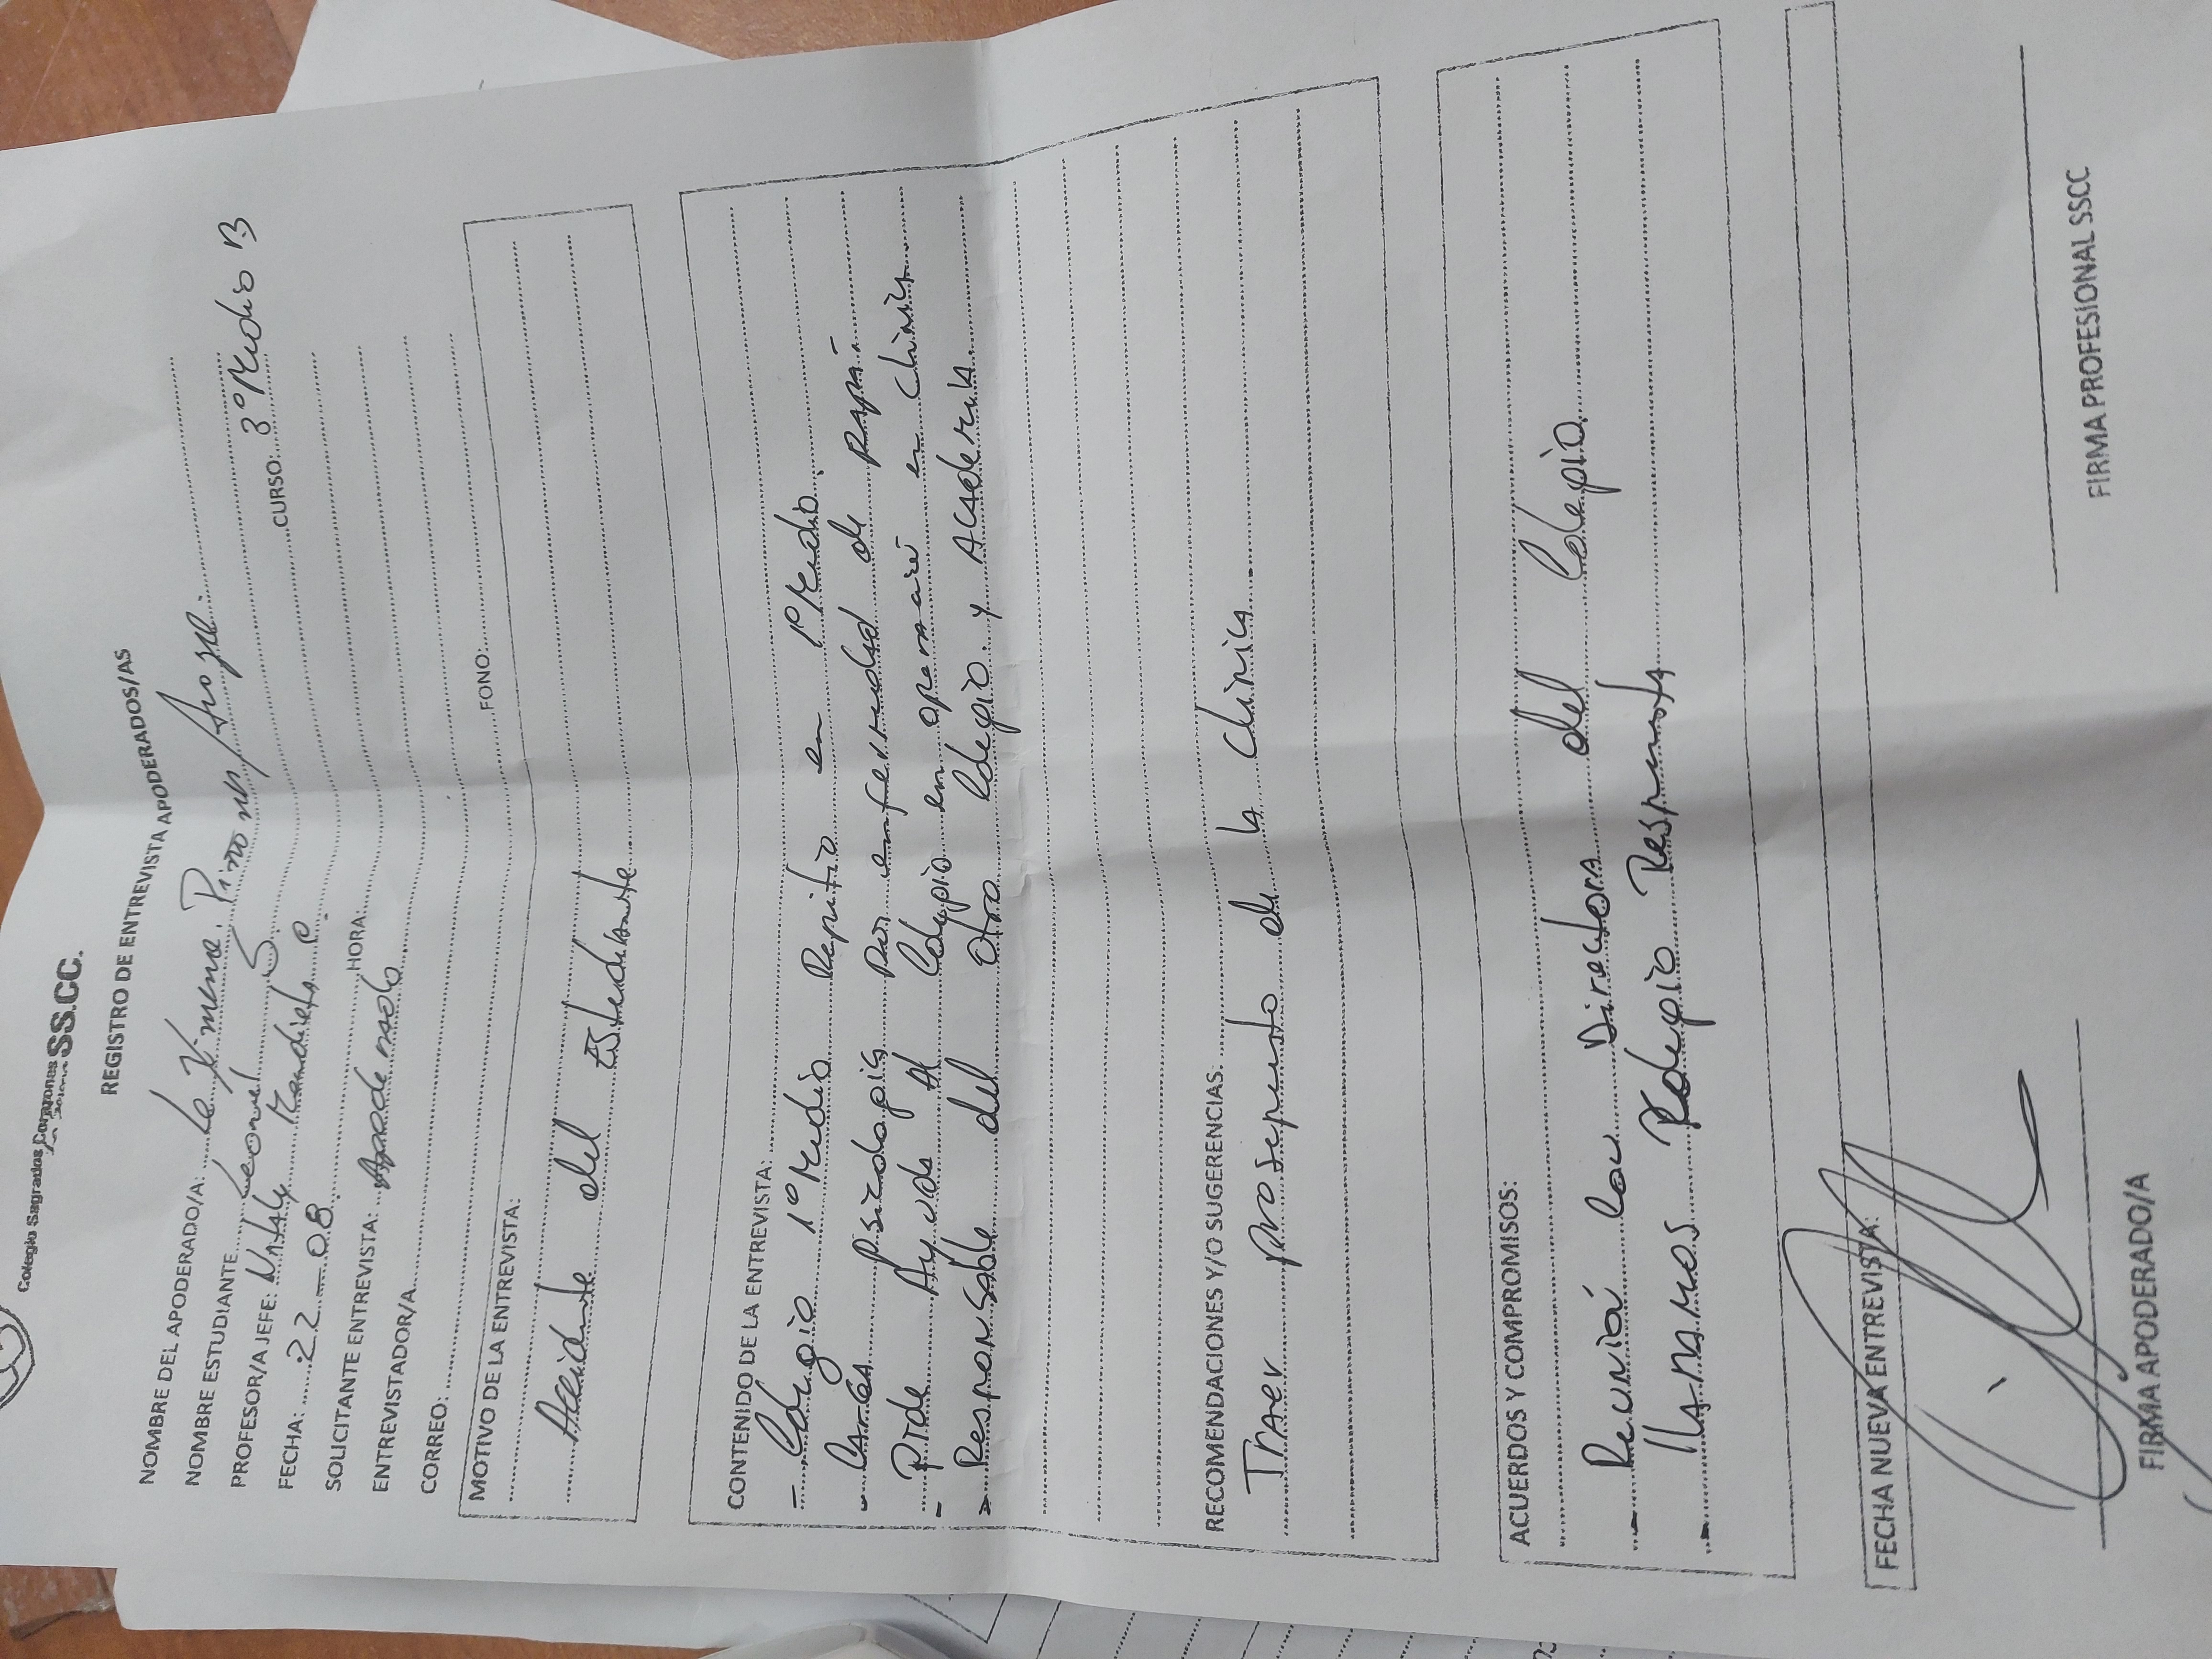 Colegio Sagrados Corazones SS.CC.
REGISTRO DE ENTREVISTA APODERADOS/AS
NOMBRE DEL APODERADO/A: Le Ximena Pino
NOMBRE ESTUDIANTE Leonel CURSO: 3º Medio B
PROFESOR/A JEFE: Nataly
FECHA: 22-08. HORA:
SOLICITANTE ENTREVISTA: Apoderado
ENTREVISTADOR/A
CORREO: FONO:
MOTIVO DE LA ENTREVISTA:
Accidente del Estudiante
CONTENIDO DE LA ENTREVISTA:
- Colegio 1º Medio Repitio en 1º Medio.
- Psicologia Por enfermedad de papá
- Pide Ayuda Al Colegio en en Clinica
- Responsable del Otro Colegio y
RECOMENDACIONES Y/O SUGERENCIAS.
Traer de la Clinica
ACUERDOS Y COMPROMISOS:
- Reunión con Directora del Colegio.
- Llamamos Colegio Respuesta
FECHA NUEVA ENTREVISTA:
FIRMA APODERADO/A FIRMA PROFESIONAL SSCC